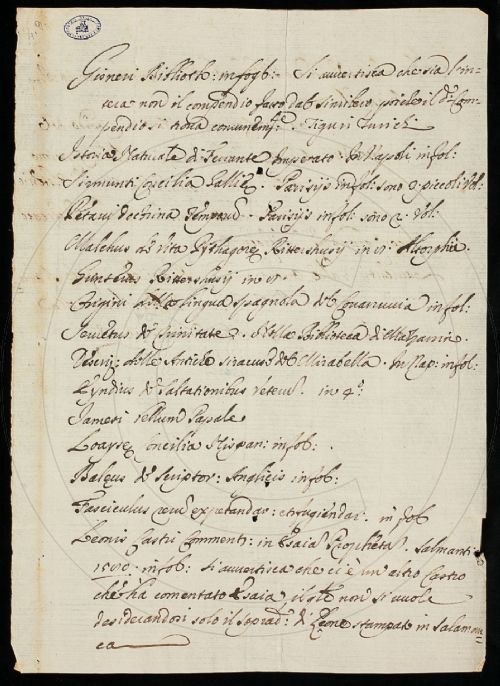 Gisneri Biblioth: in fogl: Si avvertisca che sia l'in=
teca non il compendio fatto dal Simlero, perche il d.° Com=
pendio si trova comunem.te. Tiguri Zurich
Istoria Naturale di Ferrante Imperato. In Napoli in fol:
Sirmundi Concilia Galliæ. Parisijs in fol: sono 3 piccoli vol:
Petavi Doctrina Temporū. Parisijs in fol: sono 2. vol:
Malchus de vita Pythagoræ Rittershusij in 8. Altorphij
Guntherus Rittershusij in 8.
Origini della lingua Spagnola del Covarruvia in fol:
Servetus de Trinitate. Nella Biblioteca di Mazzarini.
delle Antiche Siracuse del Mirabella. In Nap: in fol:
de Saltationibus veterū. in 4.°
Jameri vellum Papale
Loaysæ Concilia Hispan: in fol:
Baleus de Scriptor: Anglicis in fol:
Fasciculus rerū expetendar: et fugiendar. in fol
Leonis Castri Comment: in Esaiā Prophetā. Salmanti:
in fol: Si avvertisca che ci è un'altro Castro
che ha comentato Esaia, il qle non si vuole
desiderandosi solo il soprad.° di Leone stampato in Salaman
ca